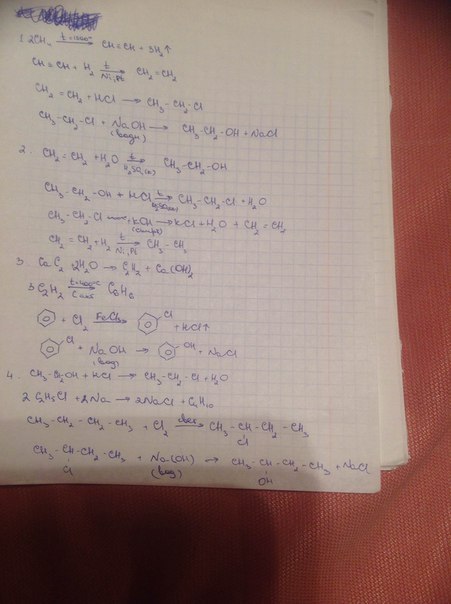 1. 2CH₄ t=1500° → CH≡CH + 3H₂↑
CH≡CH + H₂ t → Ni,Pt CH₂=CH₂
CH₂=CH₂ + HCl → CH₃-CH₂-Cl
CH₃-CH₂-Cl + NaOH (водн) → CH₃-CH₂-OH + NaCl
2. CH₂=CH₂ + H₂O t → H₂SO₄(к) CH₃-CH₂-OH
CH₃-CH₂-OH + HCl t → H₂SO₄ CH₃-CH₂-Cl + H₂O
CH₃-CH₂-Cl + KOH (спирт) → KCl + H₂O + CH₂=CH₂
CH₂=CH₂ + H₂ t → Ni,Pt CH₃-CH₃
3. CaC₂ + 2H₂O → C₂H₂ + Ca(OH)₂
3C₂H₂ C акт → C₆H₆
+ Cl₂ FeCl₃ → Cl + HCl↑
Cl + NaOH (вод) → OH + NaCl
4. CH₃-CH₂OH + HCl → CH₃-CH₂-Cl + H₂O
2C₂H₅Cl + 2Na → 2NaCl + C₄H₁₀
CH₃-CH₂-CH₂-CH₃ + Cl₂ свет → CH₃-CH-CH₂-CH₃
Cl
CH₃-CH-CH₂-CH₃ + Na(OH) → CH₃-CH-CH₂-CH₃ + NaCl
Cl (вод) OH